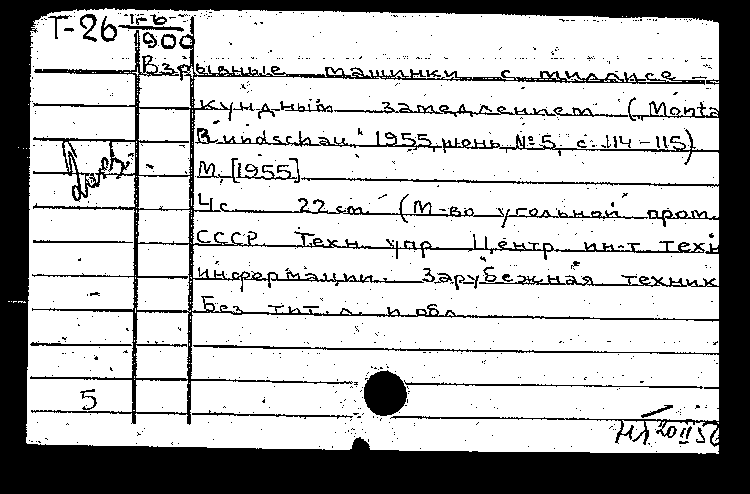 Т-26 Т-6
900
Взрывные машинки с миллисе-
кундным замедлением ("Monta
Rundschau" 1955, июнь, № 5, с. 114-115)
М, [1955]
4 с. 22 cm. (М-во угольной пром.
СССР. Техн. упр. Центр. ин-т техн
информации. Зарубежная техник
Без тит. л. и обл.
5
20 II 56